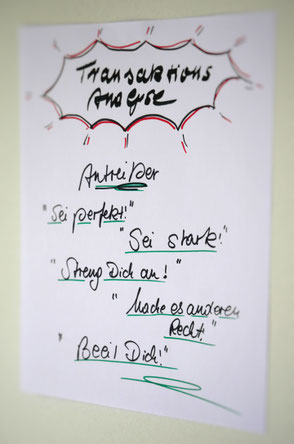 Transaktions
Analyse
Antreiber
"Sei perfekt!"
"Sei stark!"
"Streng Dich an!"
"Mache es anderen
Recht!"
"Beeil Dich!"